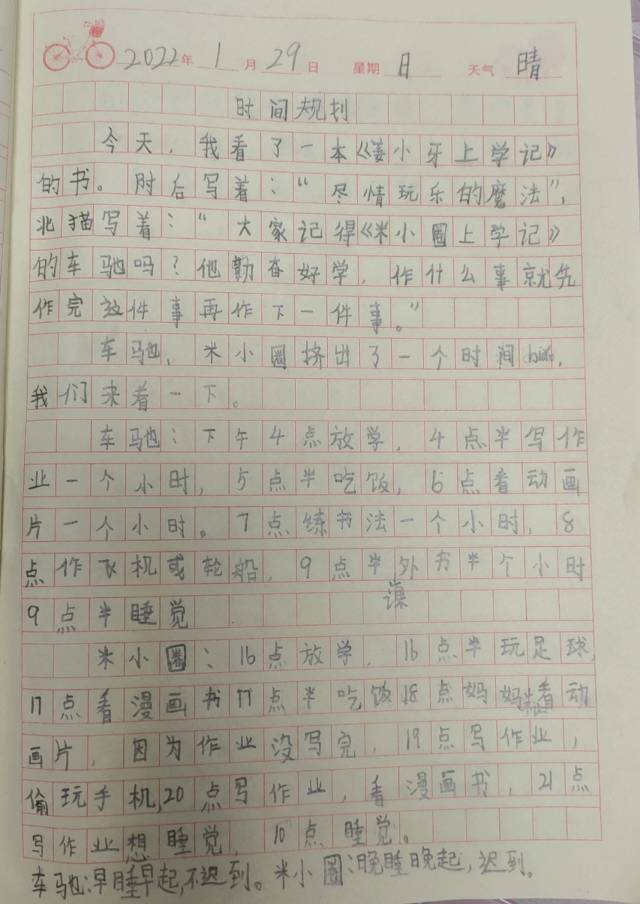 2022年 1月 29日 星期 日 天气 晴
时间规划
今天，我看了一本《姜小牙上学记》
的书。附后写着：“尽情玩乐的魔法”，
北猫写着：“大家记得《米小圈上学记》
的车驰吗？他勤奋好学，作什么事就先
作完这件事再作下一件事。”
车驰，米小圈挤出了一个时间
我们来看一下。
车驰：下午4点放学，4点半写作
业一个小时，5点半吃饭，6点看动画
片一个小时。7点练书法一个小时，8
点作飞机或轮船，9点半外书半个小时
课
9点半睡觉
米小圈：16点放学，16点半玩足球，
17点看漫画书17点半吃饭18点妈妈看动
画片，因为作业没写完，19点写作业，
偷玩手机，20点写作业，看漫画书，21点
写作业想睡觉，10点睡觉。
车驰：早睡早起，不迟到。米小圈：晚睡晚起，迟到。